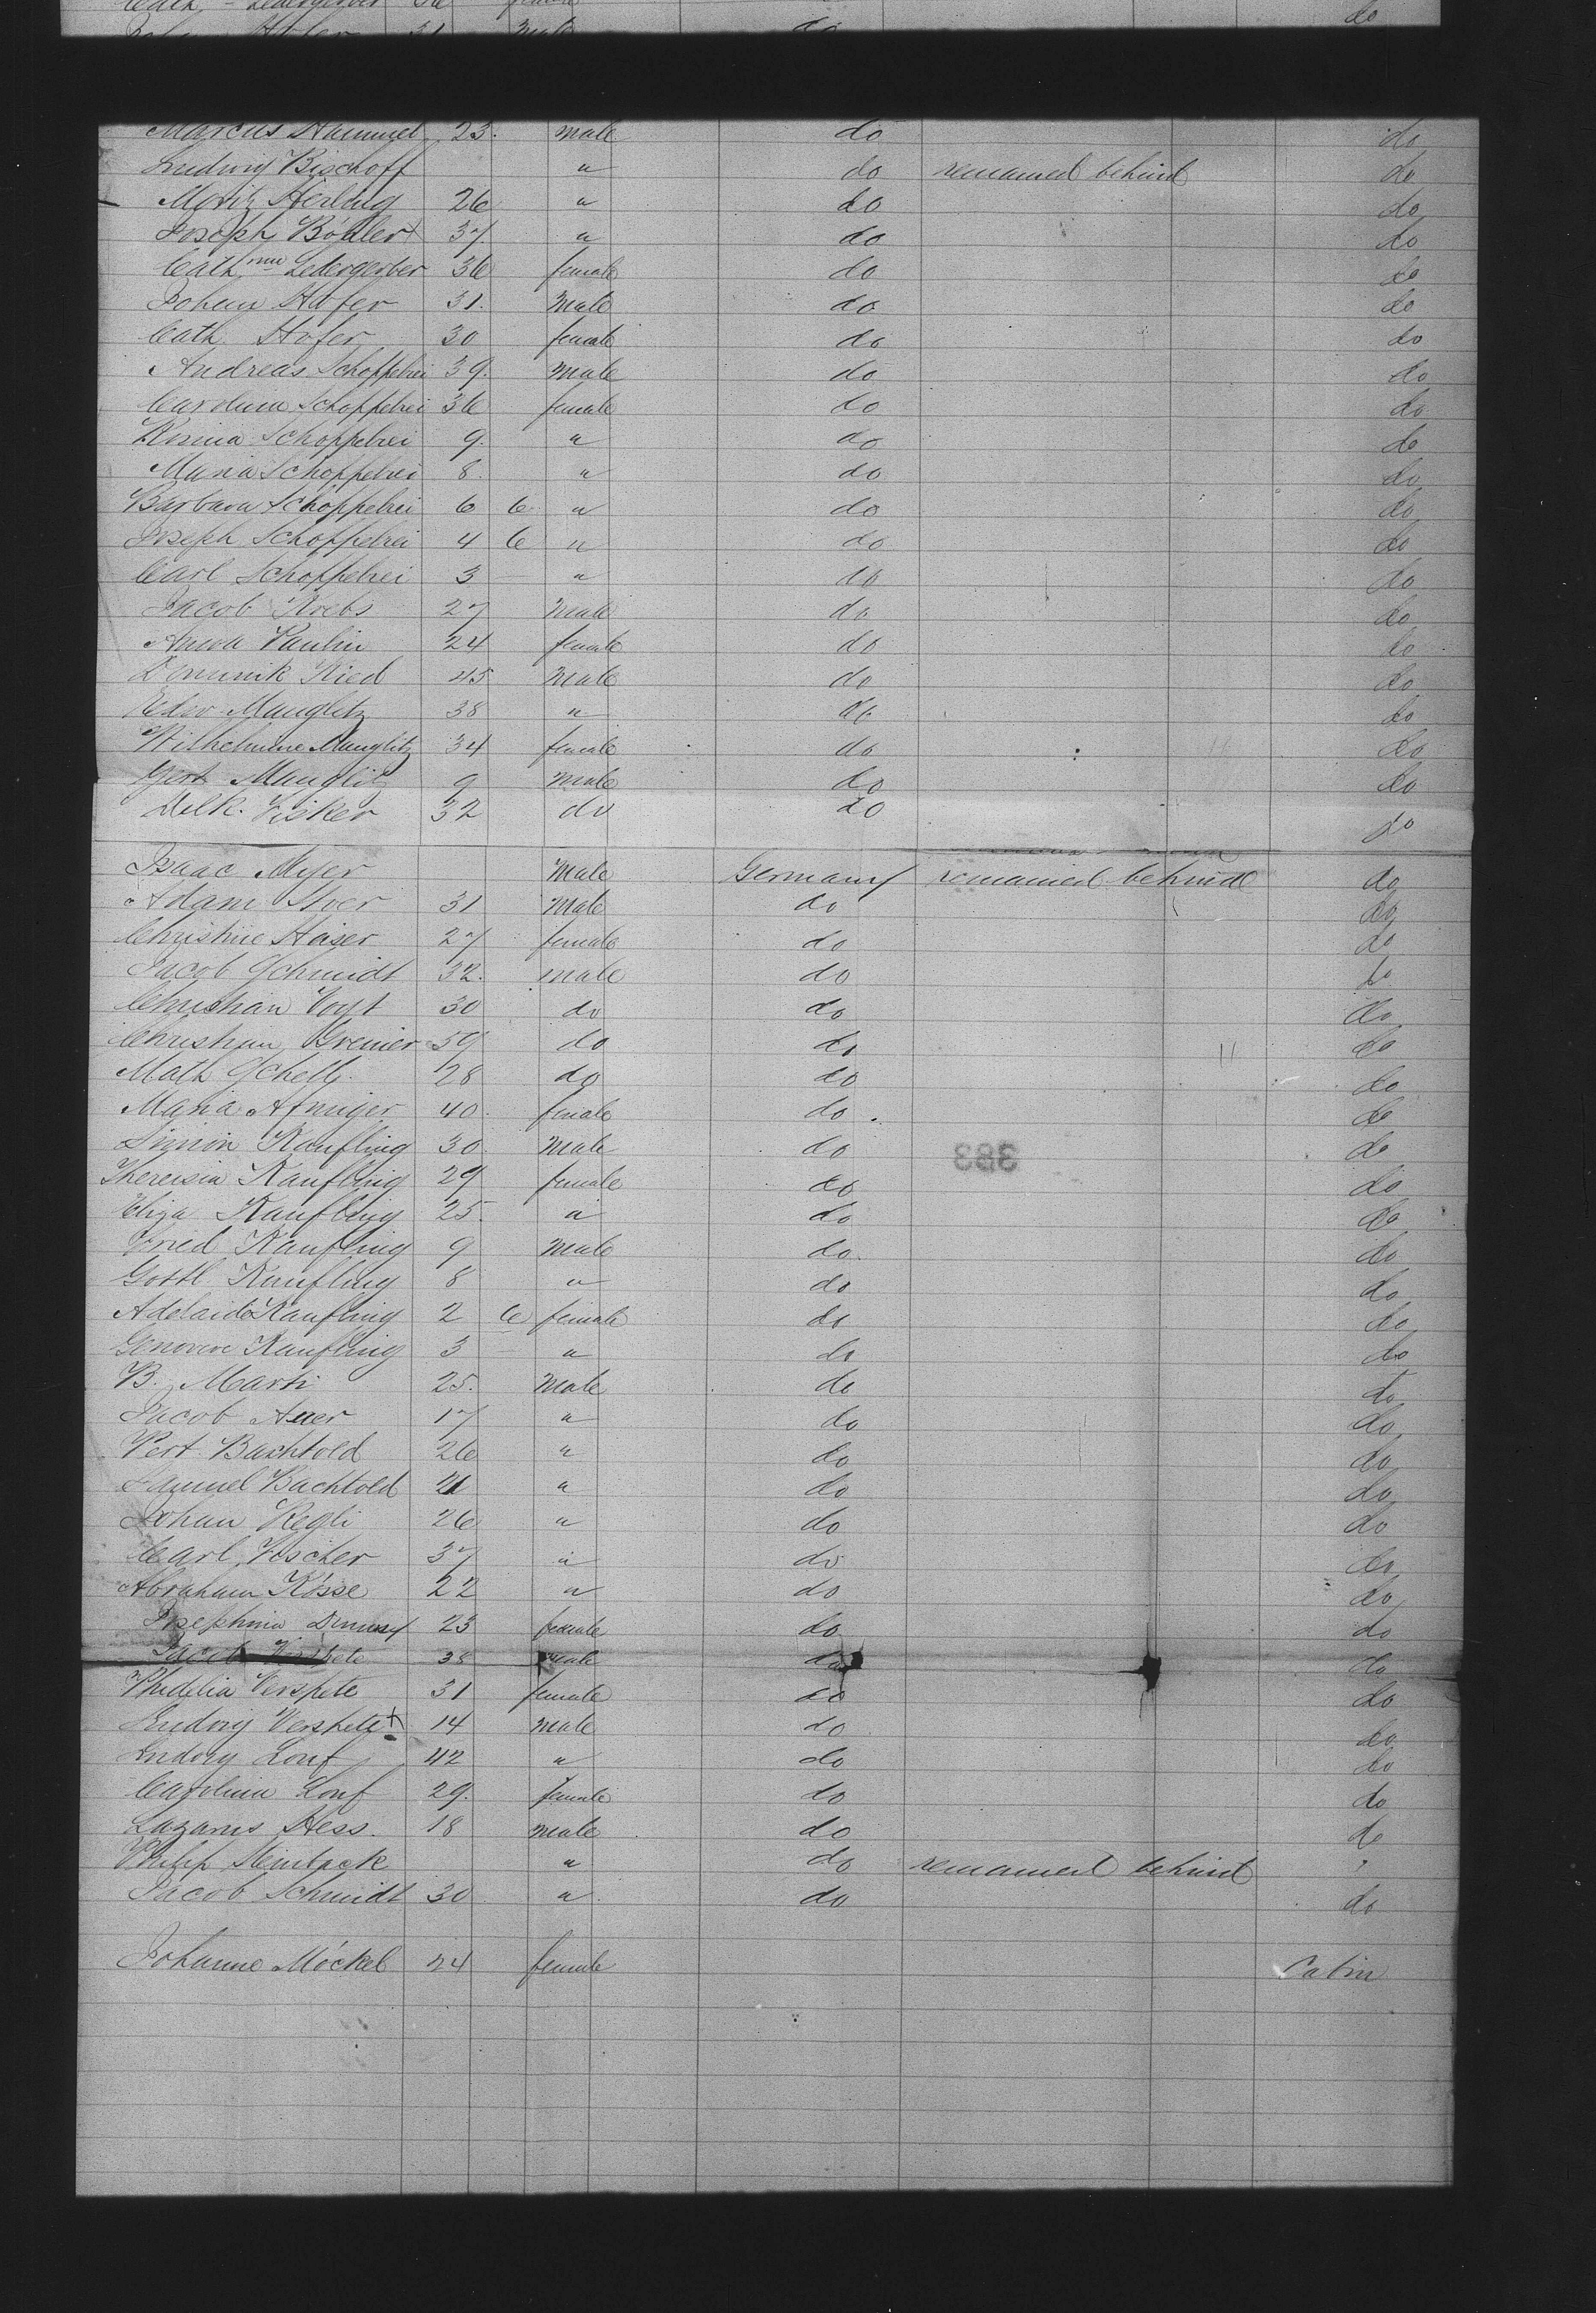 Cath - Ledergerber 36 female do
Joh Hofer 31 Male do
Marcus Hammel 23. male do do
Ludwig Bischoff " do remained behind do
Moritz Herling 26 " do do
Joseph Bödler 37 " do do
Cath Ledergerber 36 female do do
Johan Hofer 31. Male do do
Cath. Hofer 30 female do do
Andreas Schoppelrei 39. Male do do
Carolina Schoppelrei 36 female do do
Rosina Schoppelrei 9. " do do
Maria Schoppelrei 8. " do do
Barbara Schoppelrei 6 6 " do do
Joseph Schoppelrei 4 6 " do do
Carl Schoppelrei 3 — " do do
Jacob Krebs 27 Male do do
Anna Paulin 24 female do do
Dominik Ried 45 Male do do
Manglitz 38 " do do
Wilhelmine Manglitz 34 female do do
Gert Manglitz 9 male do do
Visker 32 do do do
Isaac Myer Male Germany remained behind do
Adam 31 Male do do
Christine Heiser 27 female do do
Jacob Schmidt 32. male do do
Christian Vogt 30 do do do
Christian Greiner 59 do do do
Math Schelb 28 do do do
Maria 40 female do do
Simon Kaufling 30 Male do do
383
Theresia Kaufling 29 female do do
Eliza Kaufling 25. " do do
Fried Kaufling 9 Male do do
Gottl Kaufling 8 " do do
Adelaide Kaufling 2 6 female do do
Genoveve Kaufling 3 — " do do
B. Marti 25. Male do do
Jacob Auer 17 " do do
Bachtold 26 " do do
Samuel Bachtold 21 " do do
Johan Regli 26 " do do
Carl Vischer 37 " do do
Abraham Kösse 22 " do do
Josephina 23 female do do
Jacob Verspete 38 male do do
Phidelia Verspete 31 female do do
Ludwig Verspete + 14 male do do
Ludwig Louf 42 " do do
Carolina Louf 29. female do do
Lazarus Hess. 18 male do do
Philip Steinback " do remained behind "
Jacob Schmidt 30 " do do
Johanne Möckel 24 female Cabin